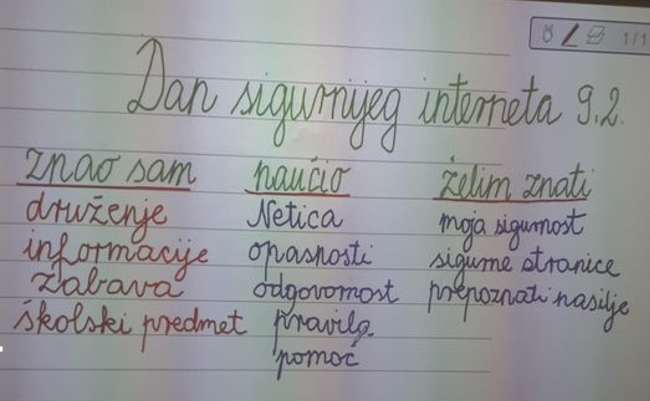 1/1
Dan sigurnijeg interneta 9.2.
znao sam
druženje
informacije
zabava
školski predmet
naučio
Netica
opasnosti
odgovornost
pravila
pomoć
želim znati
moja sigurnost
sigurne stranice
prepoznati nasilje